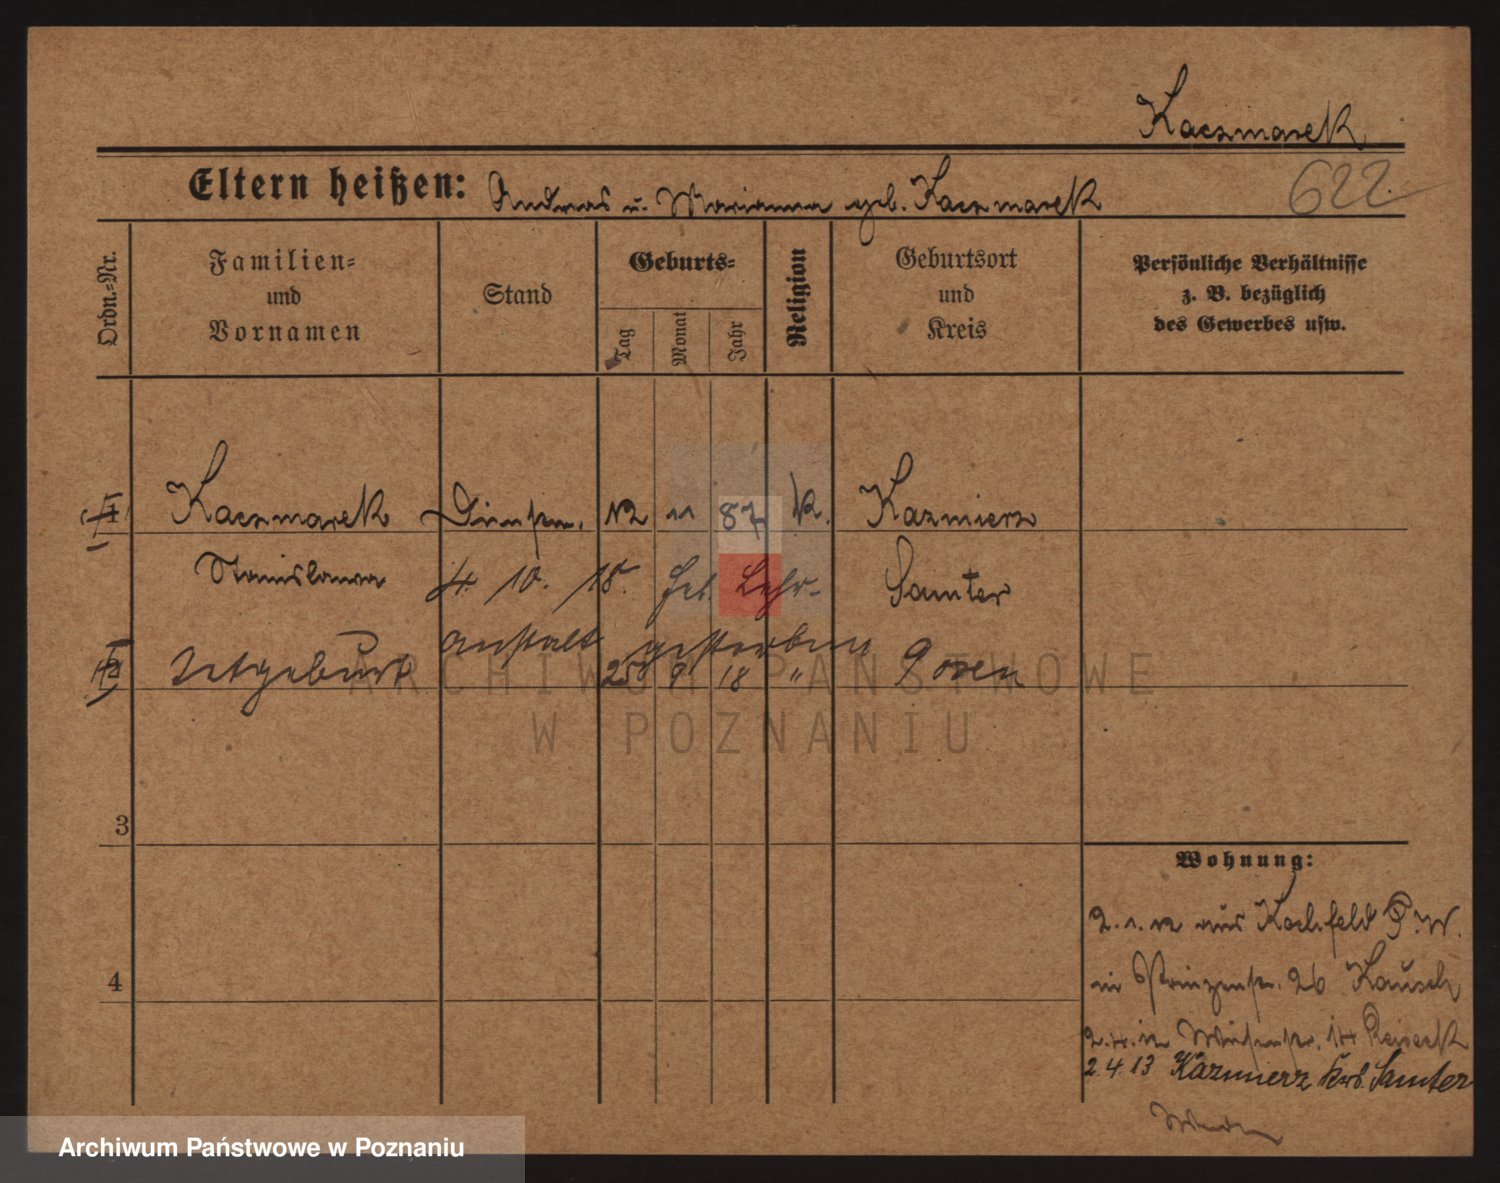 Kaczmarek
Eltern heißen: Andreas u. Marianna geb. Kaczmarek
622
Ordn.-Nr.
Familien-
und
Vornamen
Stand
Geburts-
Tag
Monat
Jahr
Religion
Geburtsort
und
Kreis
Persönliche Verhältnisse
z. B. bezüglich
des Gewerbes usw.
1 Kaczmarek 12 11 87 k. Kazmierz
Stanislawa 4. 10. 18. Heb. Lehr- Samter
anstalt gestorben
2 Totgeburt 25 9 18 " Posen
ARCHIWUM PAŃSTWOWE
W POZNANIU
3
Wohnung:
2.1.12 aus Kochfeld P.W.
4
in Prinzenstr. 26 Kausch
2.4.12 14
2.4.13 Kazmierz Krs. Samter
Archiwum Państwowe w Poznaniu